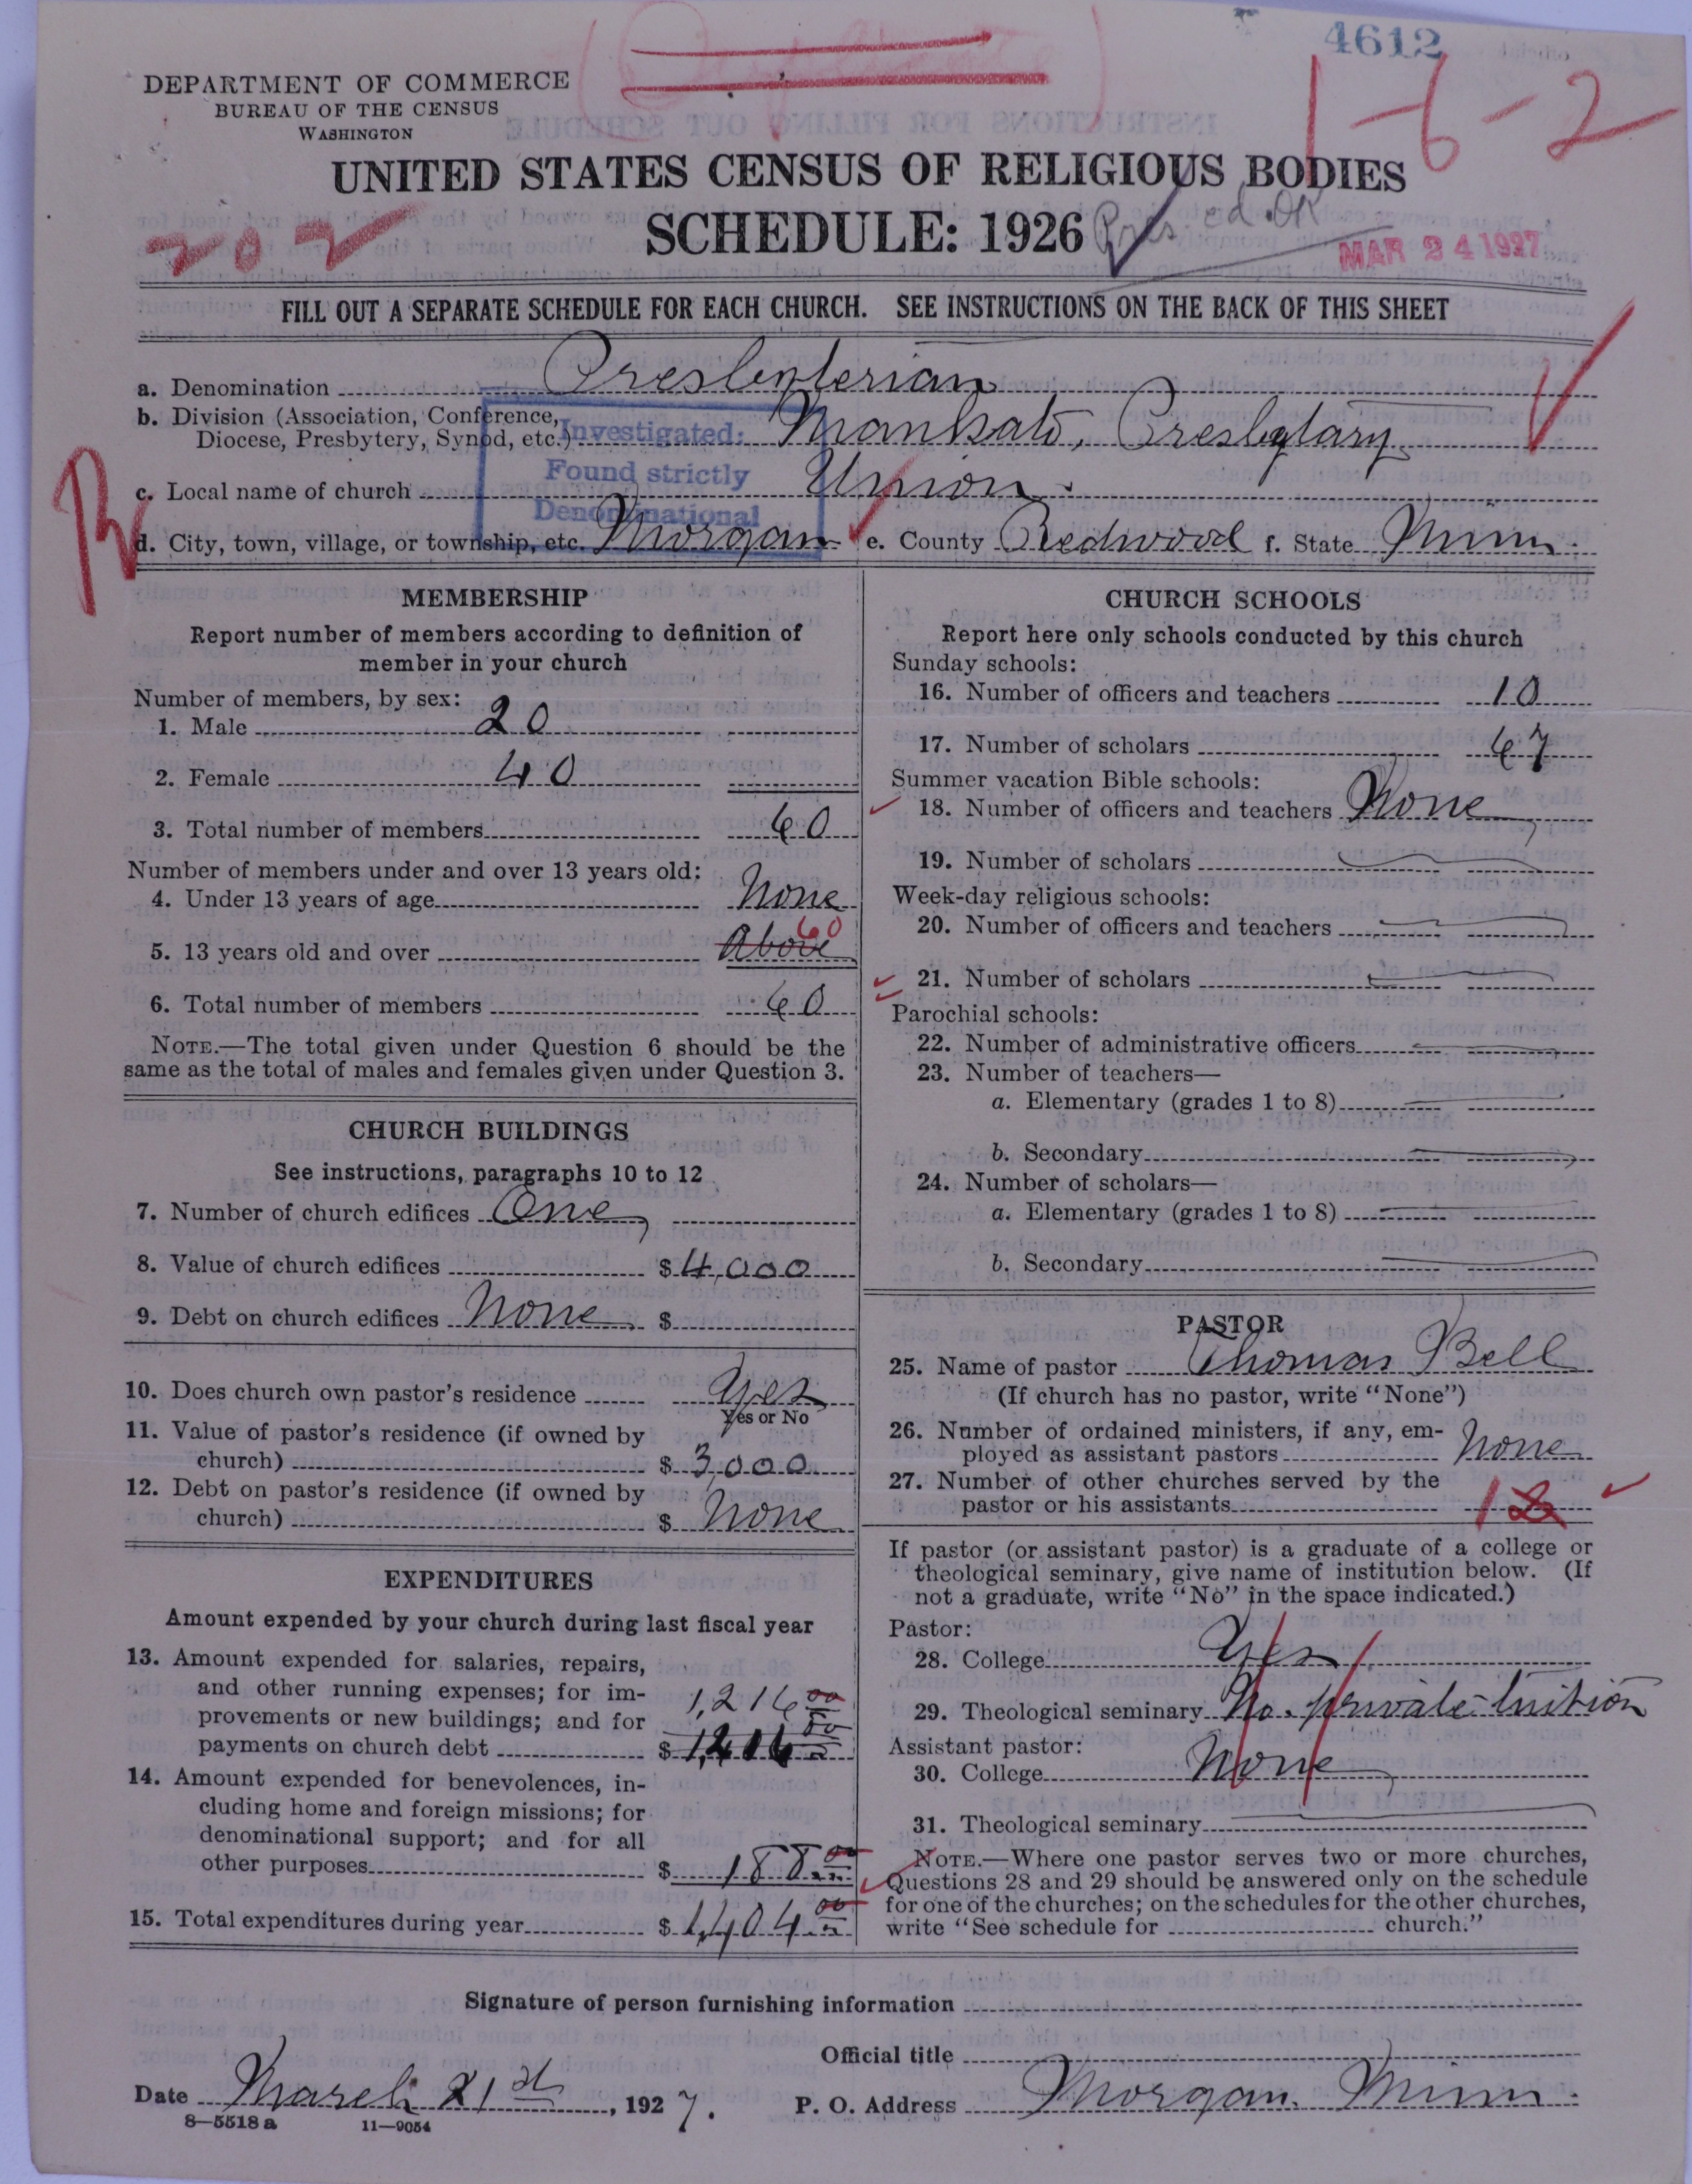 4612
1-6-2
DEPARTMENT OF COMMERCE
BUREAU OF THE CENSUS
WASHINGTON
UNITED STATES CENSUS OF RELIGIOUS BODIES
SCHEDULE: 1926
202
MAR 24 1927
FILL OUT A SEPARATE SCHEDULE FOR EACH CHURCH. SEE INSTRUCTIONS ON THE BACK OF THIS SHEET
a. Denomination Presbyterian
b. Division (Association, Conference,
Diocese, Presbytery, Synod, etc.) Mankato, Presbytary
Investigated:
Found strictly
Denominational
c. Local name of church Union.
d. City, town, village, or township, etc. Morgan e. County Redwood f. State Minn.
MEMBERSHIP
Report number of members according to definition of
member in your church
Number of members, by sex:
1. Male 20
2. Female 40
3. Total number of members 60
Number of members under and over 13 years old:
4. Under 13 years of age None
5. 13 years old and over Above 60
6. Total number of members 60
NOTE.—The total given under Question 6 should be the
same as the total of males and females given under Question 3.
CHURCH BUILDINGS
See instructions, paragraphs 10 to 12
7. Number of church edifices One,
8. Value of church edifices $ 4,000
9. Debt on church edifices None. $
10. Does church own pastor's residence Yes
Yes or No
11. Value of pastor's residence (if owned by
church) $ 3,000
12. Debt on pastor's residence (if owned by
church) $ None
EXPENDITURES
Amount expended by your church during last fiscal year
13. Amount expended for salaries, repairs,
and other running expenses; for im-
provements or new buildings; and for
payments on church debt $ 1,216 00
14. Amount expended for benevolences, in-
cluding home and foreign missions; for
denominational support; and for all
other purposes $ 188 00
15. Total expenditures during year $ 1,404 00
CHURCH SCHOOLS
Report here only schools conducted by this church
Sunday schools:
16. Number of officers and teachers 10
17. Number of scholars 67
Summer vacation Bible schools:
18. Number of officers and teachers None,
19. Number of scholars
Week-day religious schools:
20. Number of officers and teachers
21. Number of scholars
Parochial schools:
22. Number of administrative officers
23. Number of teachers—
a. Elementary (grades 1 to 8)
b. Secondary
24. Number of scholars—
a. Elementary (grades 1 to 8)
b. Secondary
PASTOR
25. Name of pastor Thomas Bell
(If church has no pastor, write "None")
26. Number of ordained ministers, if any, em-
ployed as assistant pastors None
27. Number of other churches served by the
pastor or his assistants 1
If pastor (or assistant pastor) is a graduate of a college or
theological seminary, give name of institution below. (If
not a graduate, write "No" in the space indicated.)
Pastor:
28. College Yes
29. Theological seminary No. private tuition
Assistant pastor:
30. College None
31. Theological seminary
NOTE.—Where one pastor serves two or more churches,
Questions 28 and 29 should be answered only on the schedule
for one of the churches; on the schedules for the other churches,
write "See schedule for church."
Signature of person furnishing information
Official title
Date March 21st, 1927. P. O. Address Morgan. Minn.
8—5518 a 11—9054